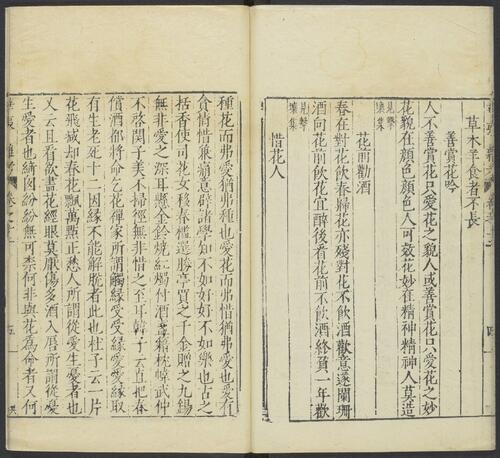 草木羊食者不長
善賞花吟
見擊壤集
人不善賞花只愛花之貌人或善賞花只愛花之妙
花貌在顏色顏色人可效花妙在精神精神人莫造
花前勸酒
見擊壤集
春在對花飲春歸花亦殘對花不飲酒歡意遂闌珊
酒向花前飲花宜醉後看花前不飲酒終負一年歡
惜花人
種花而弗愛猶弗種也愛花而弗惜猶弗愛也愛有
貪惜惜兼
括香使司花女移春檻選勝亭買之千金贈之九錫
無非愛之深耳懸金鈴燒紅燭付酒
不啓關子美不掃徑無非惜之至耳韓子云直把春
償酒都將命乞花禪家所謂觸緣受受緣愛愛緣取
有生老死十二因緣不能解脫者此也杜子云一片
花飛減却春花飄萬點正愁人所謂從愛生憂者也
又云且看欲盡花經眼莫厭傷多酒入唇所謂從憂
生愛者也綺園紛紛無可柰何非與花爲倫者又何